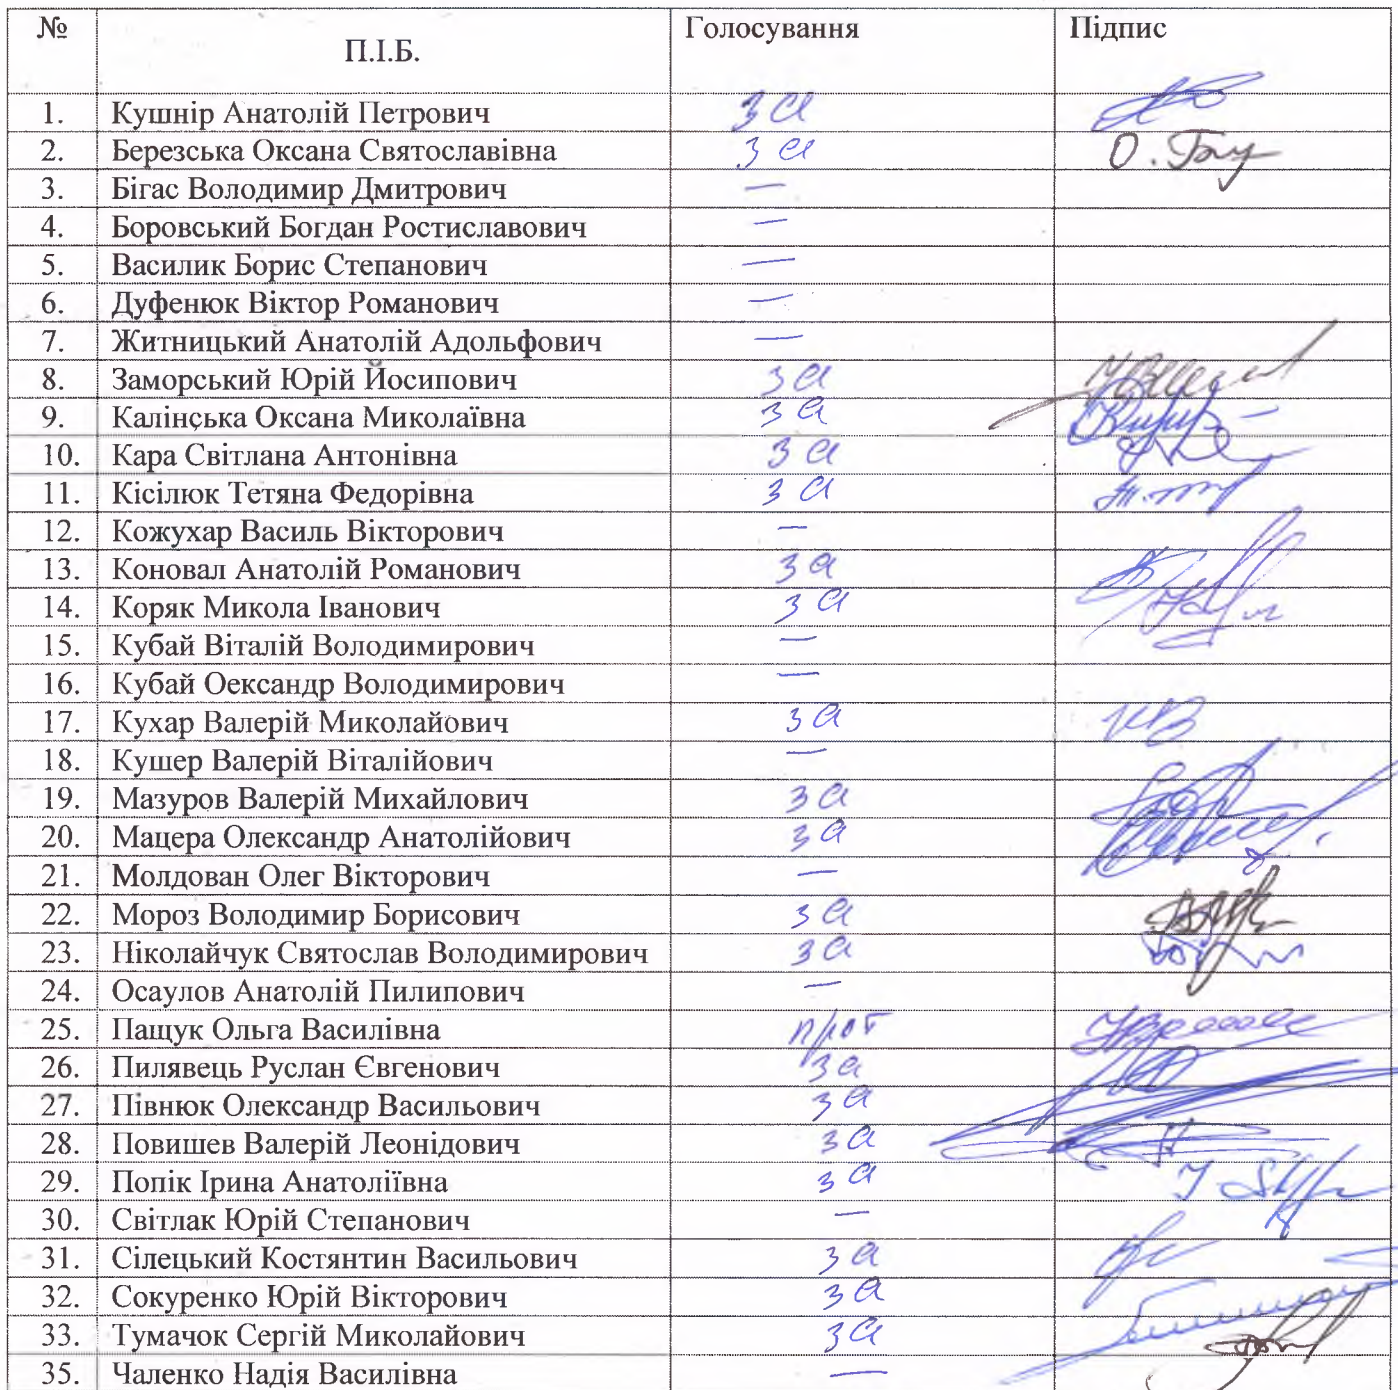 № П.І.Б. Голосування Підпис
1. Кушнір Анатолій Петрович за
2. Березська Оксана Святославівна за О.
3. Бігас Володимир Дмитрович —
4. Боровський Богдан Ростиславович —
5. Василик Борис Степанович —
6. Дуфенюк Віктор Романович —
7. Житницький Анатолій Адольфович —
8. Заморський Юрій Йосипович за
9. Калінська Оксана Миколаївна за
10. Кара Світлана Антонівна за
11. Кісілюк Тетяна Федорівна за
12. Кожухар Василь Вікторович —
13. Коновал Анатолій Романович за
14. Коряк Микола Іванович за
15. Кубай Віталій Володимирович —
16. Кубай Оександр Володимирович —
17. Кухар Валерій Миколайович за КВ
18. Кушер Валерій Віталійович —
19. Мазуров Валерій Михайлович за
20. Мацера Олександр Анатолійович за
21. Молдован Олег Вікторович —
22. Мороз Володимир Борисович за
23. Ніколайчук Святослав Володимирович за
24. Осаулов Анатолій Пилипович —
25. Пащук Ольга Василівна прот
26. Пилявець Руслан Євгенович за
27. Півнюк Олександр Васильович за
28. Повишев Валерій Леонідович за
29. Попік Ірина Анатоліївна за
30. Світлак Юрій Степанович —
31. Сілецький Костянтин Васильович за
32. Сокуренко Юрій Вікторович за
33. Тумачок Сергій Миколайович за
35. Чаленко Надія Василівна —